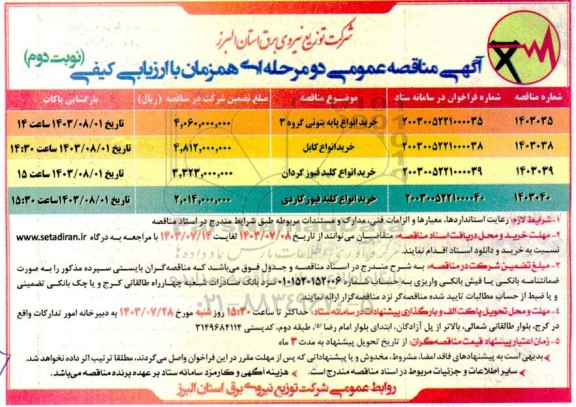 شرکت توزیع نیروی برق استان البرز
آگهی مناقصه عمومی دو مرحله ای همزمان با ارزیابی کیفی (نوبت دوم)
شماره مناقصه شماره فراخوان در سامانه ستاد موضوع مناقصه مبلغ تضمین شرکت در مناقصه (ریال) بازگشایی پاکات
۱۴۰۳۰۳۵ ۲۰۰۳۰۰۵۲۲۱۰۰۰۰۳۵ خرید انواع پایه بتونی گروه ۳ ۴,۰۶۰,۰۰۰,۰۰۰ تاریخ ۱۴۰۳/۰۸/۰۱ ساعت ۱۴
۱۴۰۳۰۳۸ ۲۰۰۳۰۰۵۲۲۱۰۰۰۰۳۸ خرید انواع کابل ۴,۸۱۲,۰۰۰,۰۰۰ تاریخ ۱۴۰۳/۰۸/۰۱ ساعت ۱۴:۳۰
۱۴۰۳۰۳۹ ۲۰۰۳۰۰۵۲۲۱۰۰۰۰۳۹ خرید انواع کلید فیوز گردان ۳,۳۲۳,۰۰۰,۰۰۰ تاریخ ۱۴۰۳/۰۸/۰۱ ساعت ۱۵
۱۴۰۳۰۴۰ ۲۰۰۳۰۰۵۲۲۱۰۰۰۰۴۰ خرید انواع کلید فیوز کاردی ۲,۰۱۴,۰۰۰,۰۰۰ تاریخ ۱۴۰۳/۰۸/۰۱ ساعت ۱۵:۳۰
۱- شرایط لازم: رعایت استانداردها، معیارها و الزامات فنی، مدارک و مستندات مربوطه طبق شرایط مندرج در اسناد مناقصه
۲- مهلت خرید و محل دریافت اسناد مناقصه: متقاضیان می توانند از تاریخ ۱۴۰۳/۰۷/۰۸ لغایت ۱۴۰۳/۰۷/۱۴ با مراجعه به درگاه www.setadiran.ir
نسبت به خرید و دانلود اسناد اقدام نمایند.
۳- مبلغ تضمین شرکت در مناقصه: به شرح مندرج در اسناد مناقصه و جدول فوق می باشد که مناقصه گران بایستی سپرده مذکور را به صورت
ضمانتنامه بانکی یا فیش بانکی واریزی به شماره ۰۱۰۱۵۳۰۱۵۲۰۰۶ نزد بانک صادرات شعبه چهارراه طالقانی کرج و یا چک بانکی تضمینی
و یا ضبط از حساب مطالبات تایید شده مناقصه گر نزد مناقصه گزار ارائه نمایند.
۴- مهلت و محل تحویل پاکت الف و بارگذاری پیشنهادات در سامانه ستاد: حداکثر تا ساعت ۱۵:۳۰ روز شنبه مورخ ۱۴۰۳/۰۷/۲۸ به دبیرخانه امور تدارکات واقع
در کرج، بلوار طالقانی شمالی، بالاتر از پل آزادگان، ابتدای بلوار امام رضا (ع)، طبقه دوم، کدپستی ۳۱۴۹۶۸۴۱۱۴
۵- زمان اعتبار پیشنهاد قیمت مناقصه گران: از تاریخ تحویل پیشنهاد به مدت ۳ ماه
بدیهی است به پیشنهادهای فاقد امضا، مشروط، مخدوش و یا پیشنهاداتی که پس از مهلت مقرر در این فراخوان واصل می گردند، مطلقا ترتیب اثر داده نخواهد شد.
سایر اطلاعات و جزئیات مربوط در اسناد مناقصه مندرج است. هزینه آگهی و کارمزد سامانه ستاد بر عهده برنده مناقصه می باشد.
روابط عمومی شرکت توزیع نیروی برق استان البرز